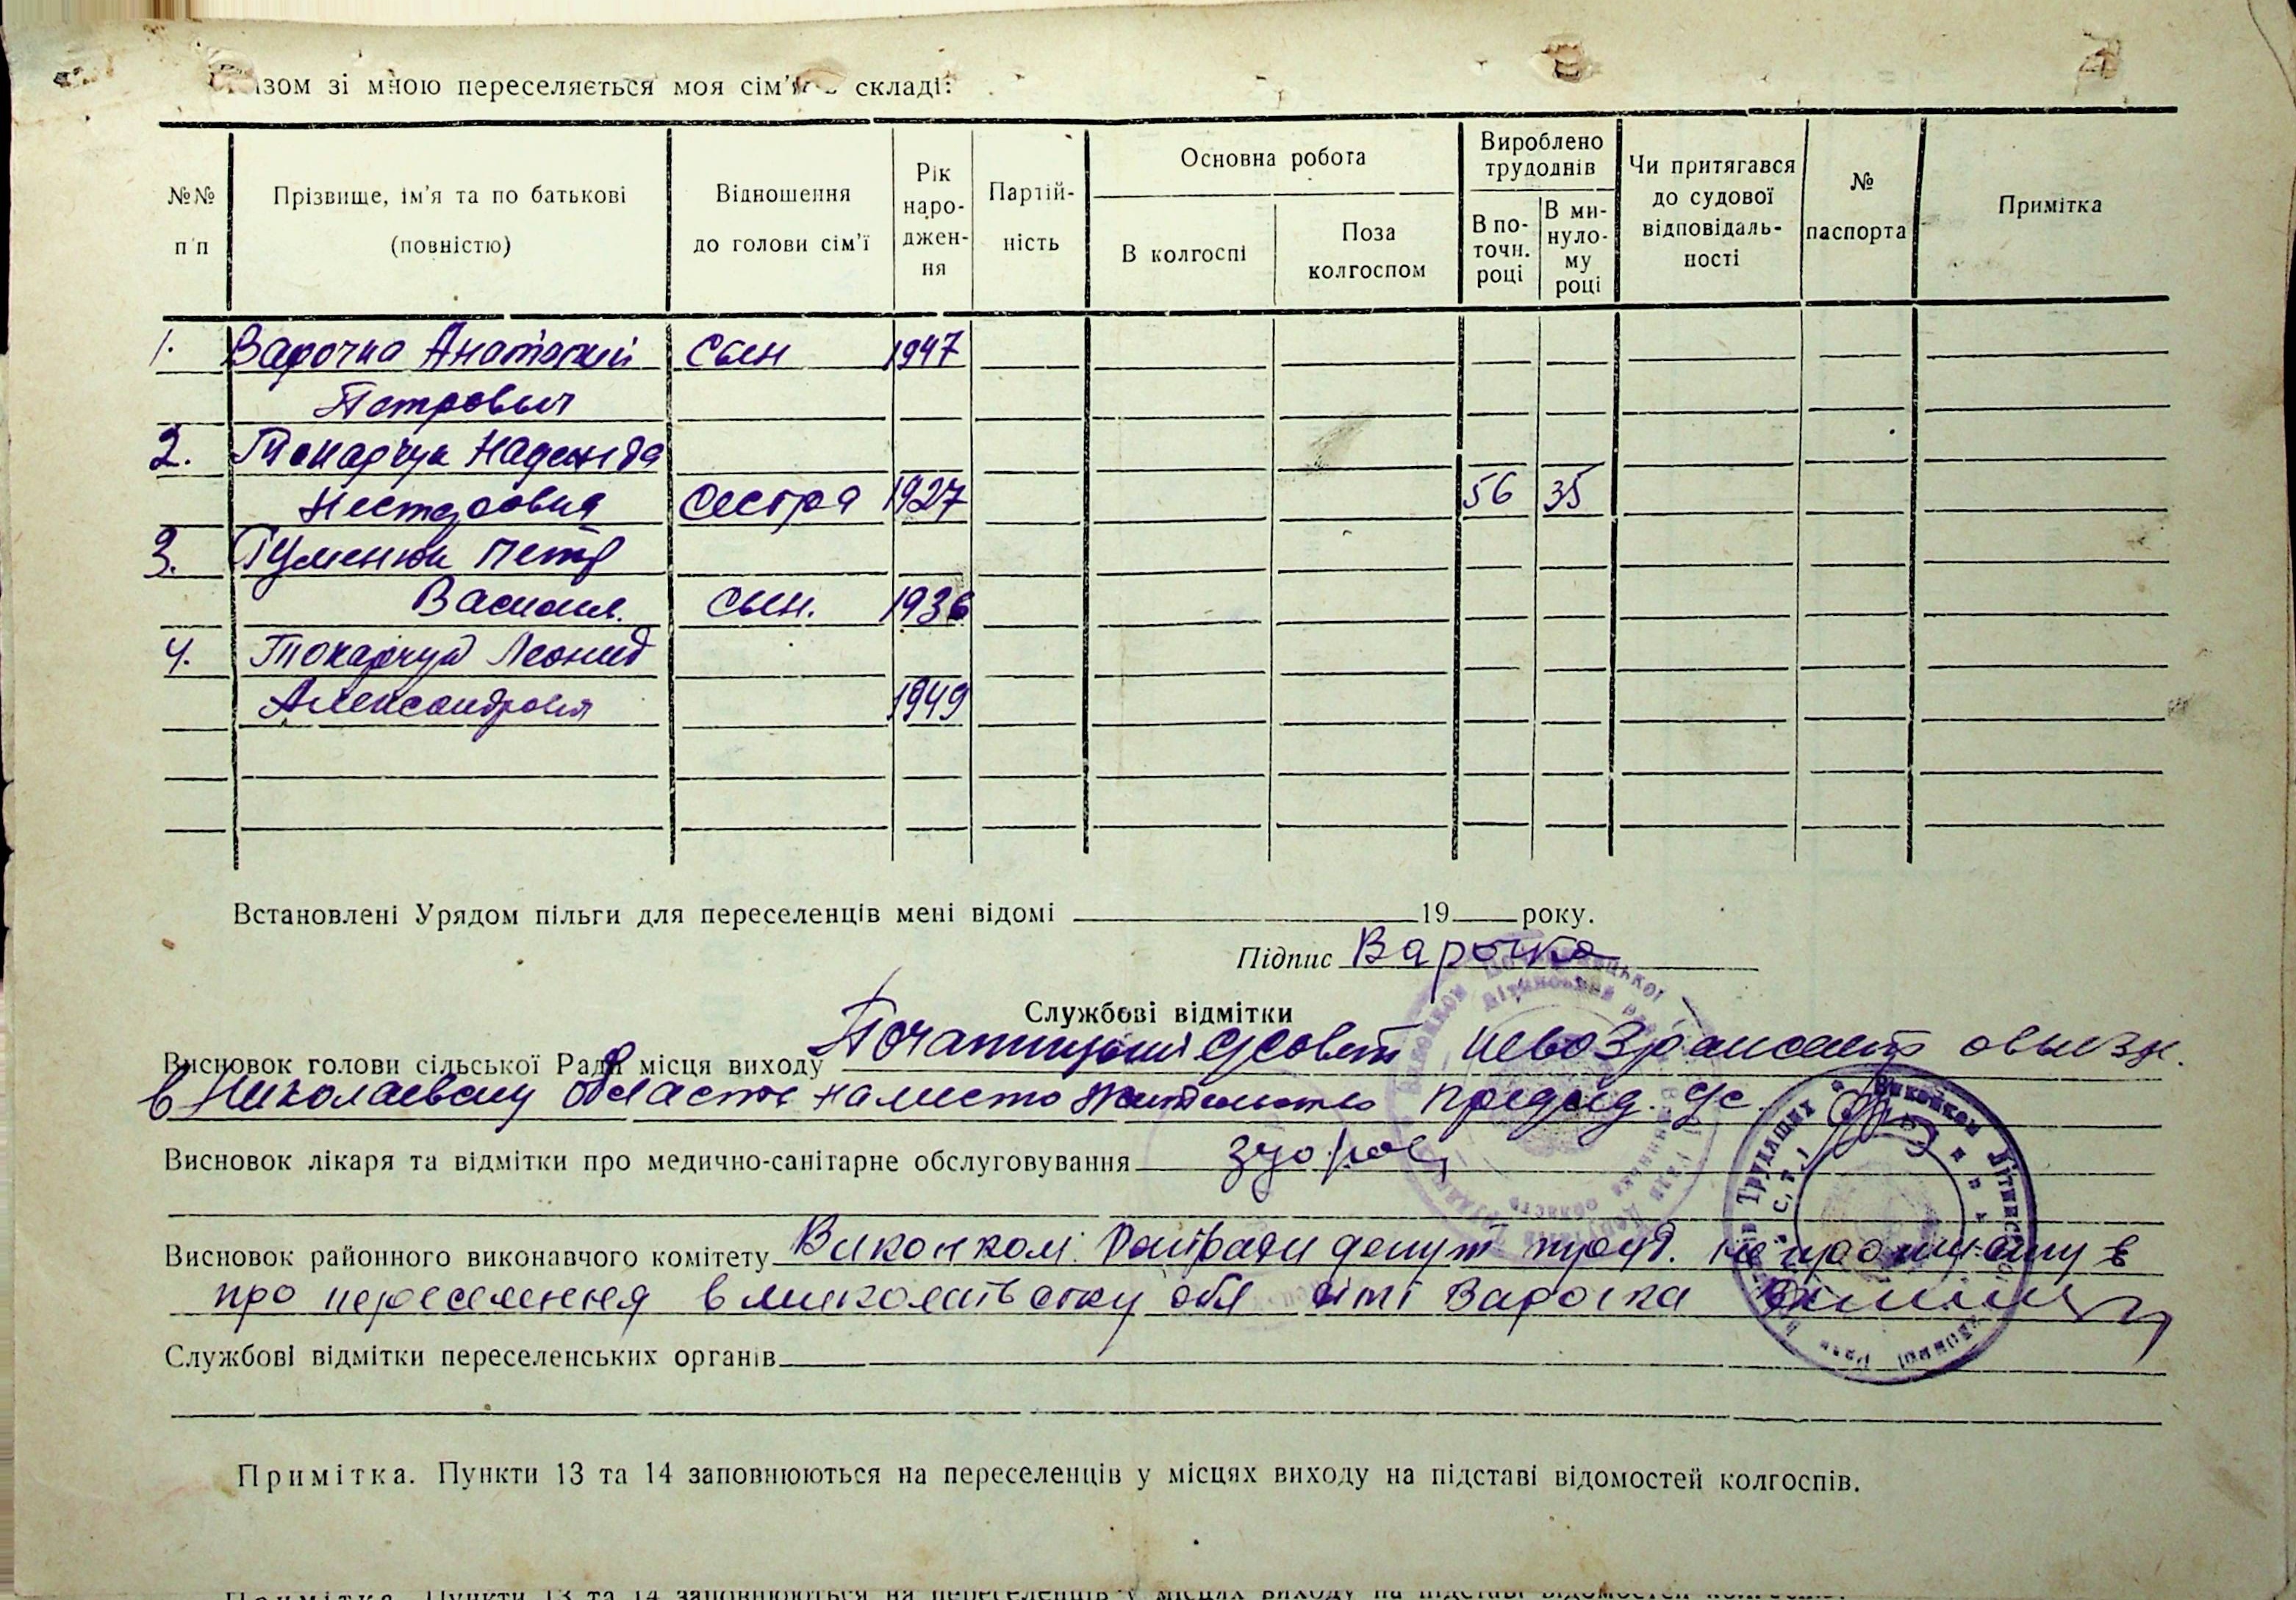 Разом зі мною переселяється моя сім'я в складі:
№№ п п
Прізвище, ім'я та по батькові (повністю)
Відношення до голови сім'ї
Рік народжен- ня
Партій- ність
Основна робота
В колгоспі
Поза колгоспом
Вироблено трудоднів
В по- точн. році
В ми- нуло- му році
Чи притягався до судової відповідаль- ності
№ паспорта
Примітка
1. Варочка Анатолий сын 1947
Петрович
2. Токарчук Надежда
Нестеровна сестра 1927 56 35
3. Гуменюк Петр
Васильев. сын. 1936
4. Токарчук Леонид
Александрович 1949
Встановлені Урядом пільги для переселенців мені відомі 19 року.
Підпис Варочка
Службові відмітки
Висновок голови сільської Ради місця виходу ссовет невозражает овыезде
в Николаевскую область наместо жительство председ. с/с.
Висновок лікаря та відмітки про медично-санітарне обслуговування здорові
Висновок районного виконавчого комітету Виконком Райради депут труд. не проти
про переселення в миколаївську обл сімї Варочка
Службові відмітки переселенських органів
Примітка. Пункти 13 та 14 заповнюються на переселенців у місцях виходу на підставі відомостей колгоспів.
Примітка. Пункти 13 та 14 заповнюються на переселенців у місцях виходу на підставі відомостей колгоспів.